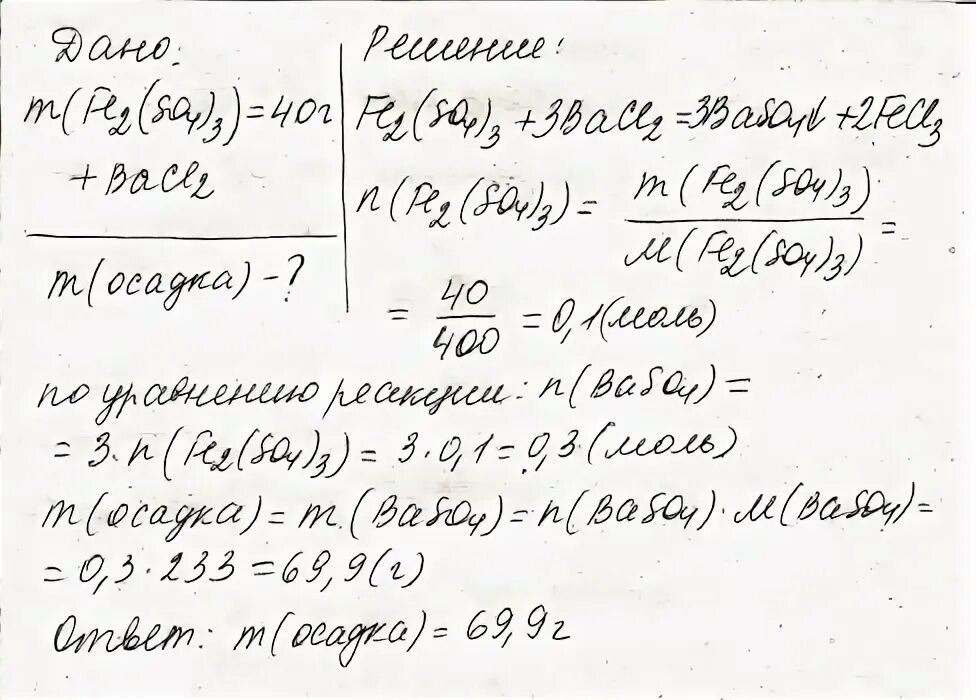 Дано:
m(Fe2(SO4)3)=40г
+ BaCl2
m(осадка) - ?
Решение:
Fe2(SO4)3 + 3BaCl2 = 3BaSO4↓ + 2FeCl3
n(Fe2(SO4)3) = m(Fe2(SO4)3) / M(Fe2(SO4)3) =
= 40/400 = 0,1(моль)
по уравнению реакции: n(BaSO4) =
= 3·n(Fe2(SO4)3) = 3·0,1 = 0,3(моль)
m(осадка) = m(BaSO4) = n(BaSO4)·M(BaSO4) =
= 0,3·233 = 69,9(г)
Ответ: m(осадка) = 69,9г